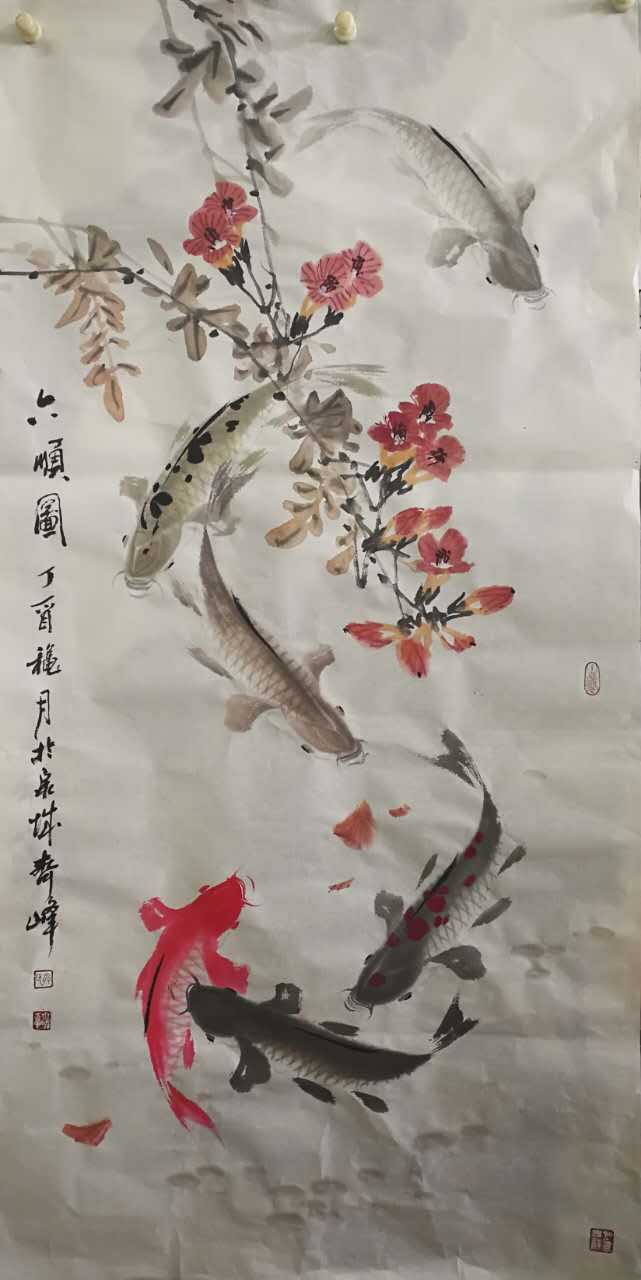 六順圖丁酉龝月於泉城齊峰